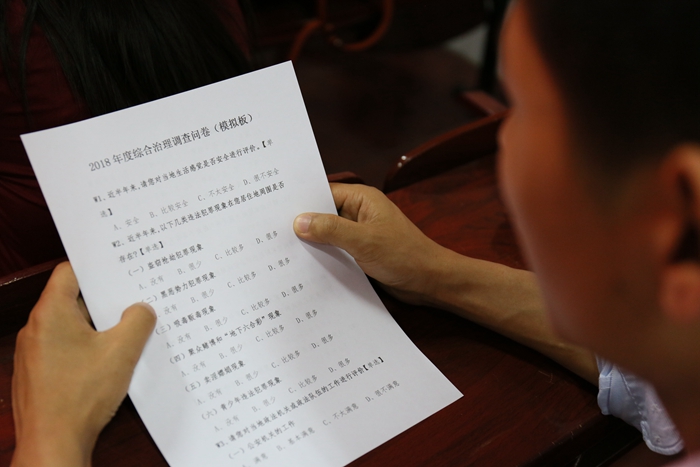 2018 年度综合治理调查问卷（模拟板）
W1、近半年来，请您对当地生活感觉是否安全进行评价。【单
选】
A、安全 B、比较安全 C、不大安全 D、很不安全
W2、近半年来，以下几类违法犯罪现象在您居住地周围是否
存在？【单选】
（一）盗窃抢劫犯罪现象
A、没有 B、很少 C、比较多 D、很多
（二）黑恶势力犯罪现象
A、没有 B、很少 C、比较多 D、很多
（三）吸毒贩毒现象
A、没有 B、很少 C、比较多 D、很多
（四）聚众赌博和“地下六合彩”现象
A、没有 B、很少 C、比较多 D、很多
（五）卖淫嫖娼现象
A、没有 B、很少 C、比较多 D、很多
（六）青少年违法犯罪现象
A、没有 B、很少 C、比较多 D、很多
W3、请您对当地政法机关或政法队伍的工作进行评价【单选】
（一）公安机关的工作
A、满意 B、基本满意 C、不大满意 D、很不满意